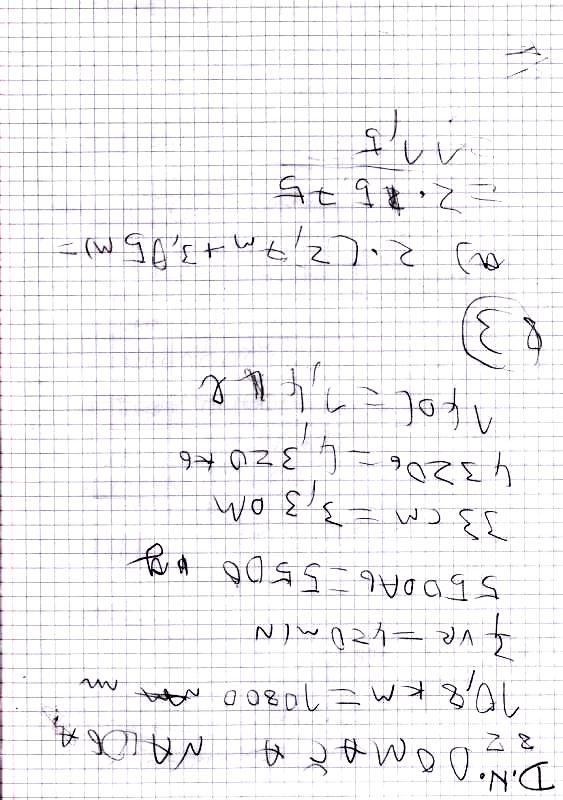 D.N. DOMAČA NALOGA
32
10,8 KM = 10800 m
7 UR = 420 MIN
550 DAG = 5500 g
33 CM = 3,3 DM
4320G = 4,320 KG
14 DL = 1,4 L
3
a) 2 · (2,7m + 3,05m) =
= 2 · 5,75
= 11,5